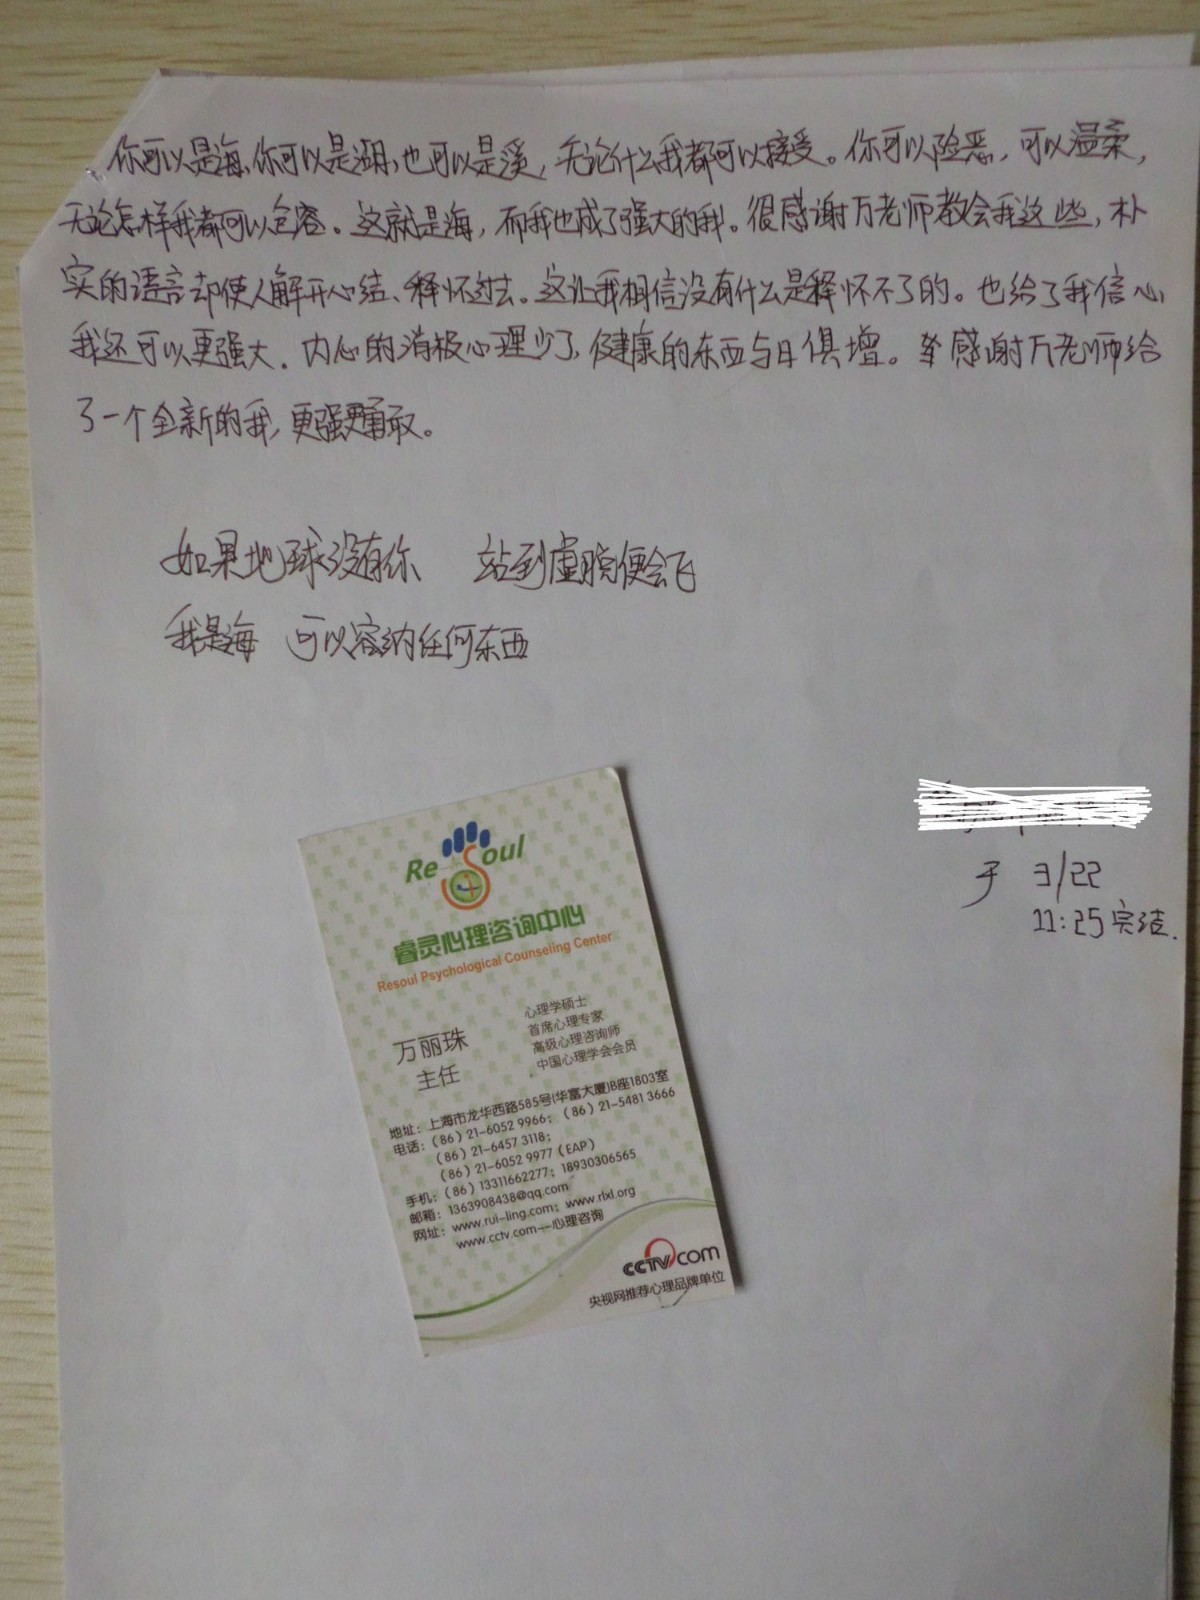 你可以是海，你可以是湖，也可以是溪，无论什么我都可以接受。你可以险恶，可以温柔，
无论怎样我都可以包容。这就是海，而我也成了强大的我。很感谢万老师教会我这些，朴
实的语言却使人解开心结、释怀过去。这让我相信没有什么是释怀不了的。也给了我信心，
我还可以更强大．内心的消极心理少了，健康的东西与日俱增。感谢万老师给
了一个全新的我，更强更勇敢。
如果地球没有你 站到虚脱便会飞
我是海 可以容纳任何东西
于 3/22
11:25完结.
Re Soul
睿灵心理咨询中心
Resoul Psychological Counseling Center
万丽珠
主任
心理学硕士
首席心理专家
高级心理咨询师
中国心理学会会员
地址：上海市龙华西路585号(华富大厦)B座1803室
电话：(86) 21-6052 9966；(86) 21-5481 3666
(86) 21-6457 3118；
(86) 21-6052 9977 (EAP)
手机：(86) 13311662277；18930306565
邮箱：1363908438@qq.com
网址：www.rui-ling.com；www.rlxl.org
www.cctv.com---心理咨询
CCTV.com
央视网推荐心理品牌单位